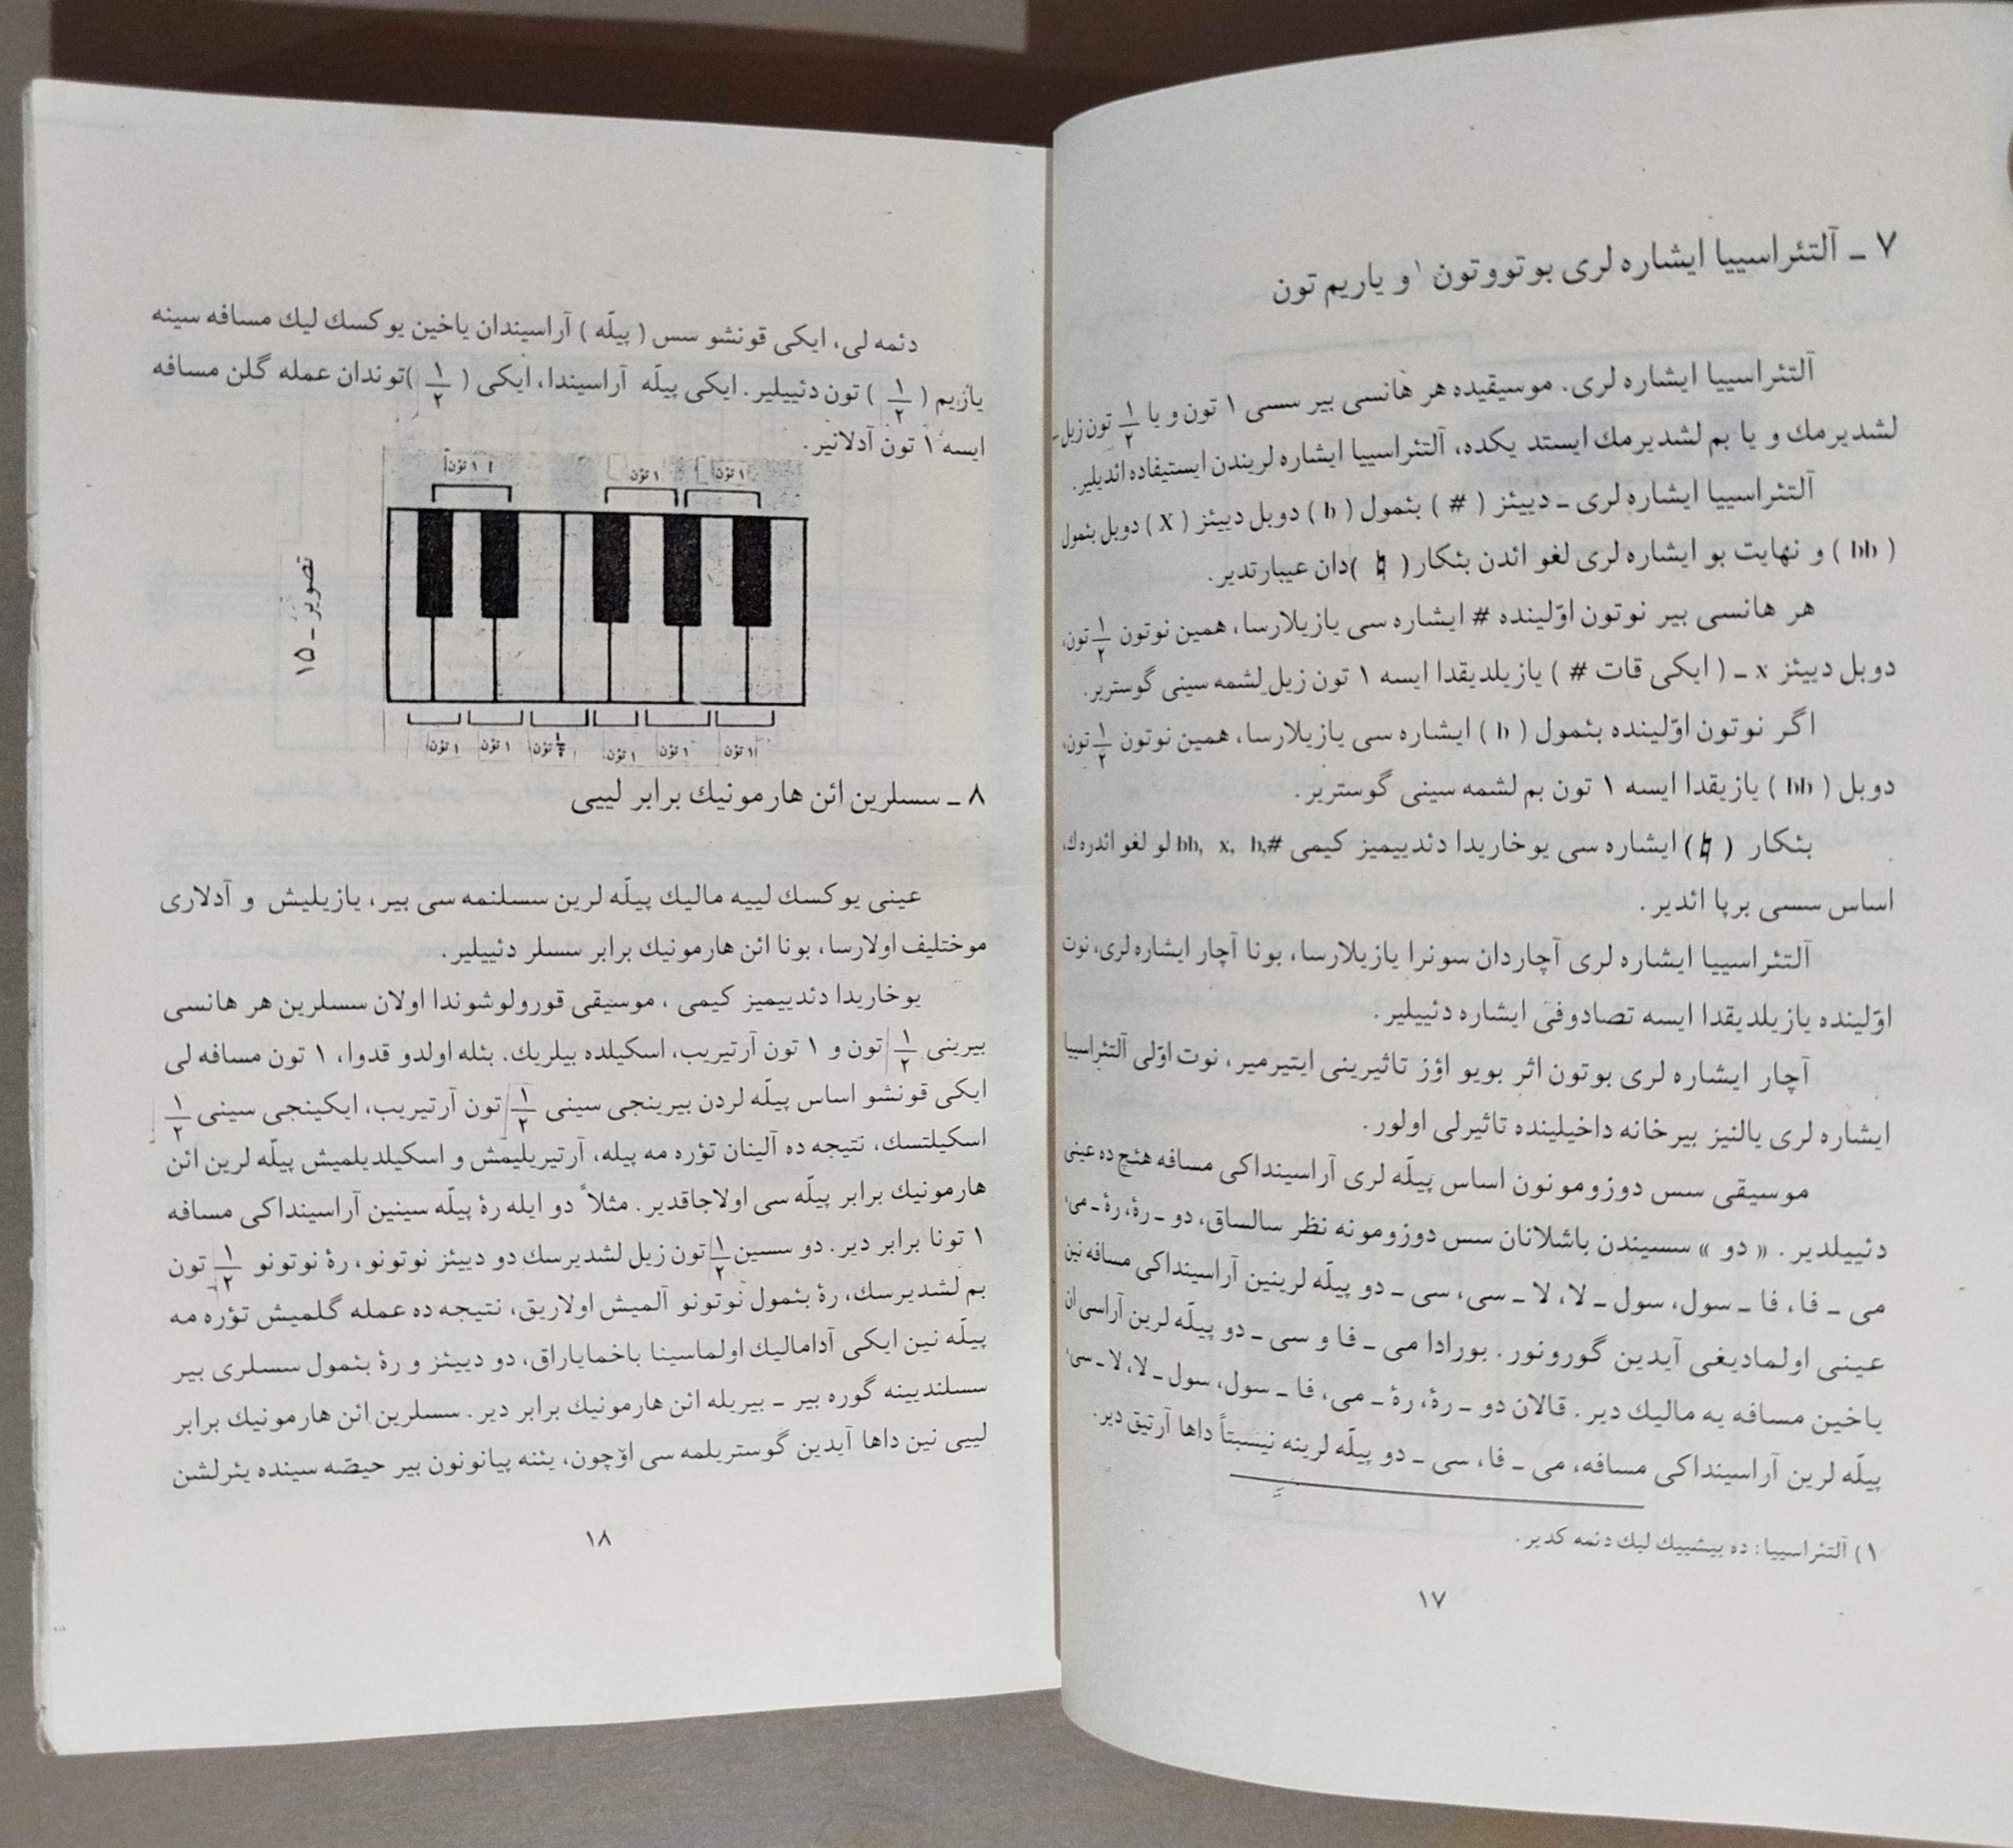 ۷ ـ آلتئراسییا ایشاره لری بوتووتون ۱ و یاریم تون
آلتئراسییا ایشاره لری. موسیقیده هر هانسی بیر سسی ۱ تون و یا ۱/۲ تون زیل ـ
لشدیرمك و یا بم لشدیرمك ایستد یکده، آلتئراسییا ایشاره لریندن ایستیفاده ائدیلیر.
آلتئراسییا ایشاره لری ـ دییئز ( # ) بئمول ( b ) دوبل دییئز ( X ) دوبل بئمول
( bb ) و نهایت بو ایشاره لری لغو ائدن بئکار ( ♮ )دان عیبارتدیر.
هر هانسی بیر نوتون اوّلینده # ایشاره سی یازیلارسا، همین نوتون ۱/۲ تون،
دوبل دییئز x ـ ( ایکی قات # ) یازیلدیقدا ایسه ۱ تون زیل لشمه سینی گوستریر.
اگر نوتون اوّلینده بئمول ( b ) ایشاره سی یازیلارسا، همین نوتون ۱/۲ تون،
دوبل ( bb ) یازیقدا ایسه ۱ تون بم لشمه سینی گوستریر.
بئکار ( ♮ ) ایشاره سی یوخاریدا دئدییمیز کیمی #bb, x, b, لو لغو ائدره ك،
اساس سسی برپا ائدیر.
آلتئراسییا ایشاره لری آچاردان سونرا یازیلارسا، بونا آچار ایشاره لری، نوت
اوّلینده یازیلدیقدا ایسه تصادوفی ایشاره دئییلیر.
آچار ایشاره لری بوتون اثر بویو اؤز تاثیرینی ایتیرمیر، نوت اوّلی آلتئراسییا
ایشاره لری یالنیز بیر خانه داخیلینده تاثیرلی اولور.
موسیقی سس دوزومونون اساس پیلّه لری آراسینداکی مسافه هئچ ده عینی
دئییلدیر. « دو » سسیندن باشلانان سس دوزومونه نظر سالساق، دو ـ رهٔ، رهٔ ـ می،
می ـ فا، فا ـ سول، سول ـ لا، لا ـ سی، سی ـ دو پیلّه لرینین آراسینداکی مسافه نین
عینی اولمادیغی آیدین گورونور. بورادا می ـ فا و سی ـ دو پیلّه لرین آراسی ان
یاخین مسافه یه مالیك دیر. قالان دو ـ رهٔ، رهٔ ـ می، فا ـ سول، سول ـ لا، لا ـ سی،
پیلّه لرین آراسینداکی مسافه، می ـ فا، سی ـ دو پیلّه لرینه نیسبتاً داها آرتیق دیر.
۱) آلتئراسییا: ده ییشییك لیك دئمه کدیر.
۱۷
دئمه لی، ایکی قونشو سس ( پیلّه ) آراسیندان یاخین یوکسك لیك مسافه سینه
یازیم ( ۱/۲ ) تون دئییلیر. ایکی پیلّه آراسیندا، ایکی ( ۱/۲ )توندان عمله گلن مسافه
ایسه ۱ تون آدلانیر.
۱ تؤن ۱ تؤن ۱ تؤن
تصویر ـ ۱۵
۱ تؤن ۱ تؤن ۱/۲ تؤن ۱ تؤن ۱ تؤن ۱ تؤن
۸ ـ سسلرین ائن هارمونیك برابر لییی
عینی یوکسك لییه مالیك پیلّه لرین سسلنمه سی بیر، یازیلیش و آدلاری
موختلیف اولارسا، بونا ائن هارمونیك برابر سسلر دئییلیر.
یوخاریدا دئدییمیز کیمی ، موسیقی قورولوشوندا اولان سسلرین هر هانسی
بیرینی ۱/۲ تون و ۱ تون آرتیریب، اسکیلده بیلریك. بئله اولدو قدوا، ۱ تون مسافه لی
ایکی قونشو اساس پیلّه لردن بیرینجی سینی ۱/۲ تون آرتیریب، ایکینجی سینی ۱/۲
اسکیلتسك، نتیجه ده آلینان تؤره مه پیله، آرتیریلیمش و اسکیلدیلمیش پیلّه لرین ائن
هارمونیك برابر پیلّه سی اولاجاقدیر. مثلاً دو ایله رهٔ پیلّه سینین آراسینداکی مسافه
۱ تونا برابر دیر. دو سسین ۱/۲ تون زیل لشدیرسك دو دییئز نوتونو، رهٔ نوتونو ۱/۲ تون
بم لشدیرسك، رهٔ بئمول نوتونو آلمیش اولاریق، نتیجه ده عمله گلمیش تؤره مه
پیلّه نین ایکی آدامالیك اولماسینا باخمایاراق، دو دییئز و رهٔ بئمول سسلری بیر
سسلندیینه گوره بیر ـ بیریله ائن هارمونیك برابر دیر. سسلرین ائن هارمونیك برابر
لییی نین داها آیدین گوستریلمه سی اؤچون، یئنه پیانونون بیر حیصّه سینده یئرلشن
۱۸